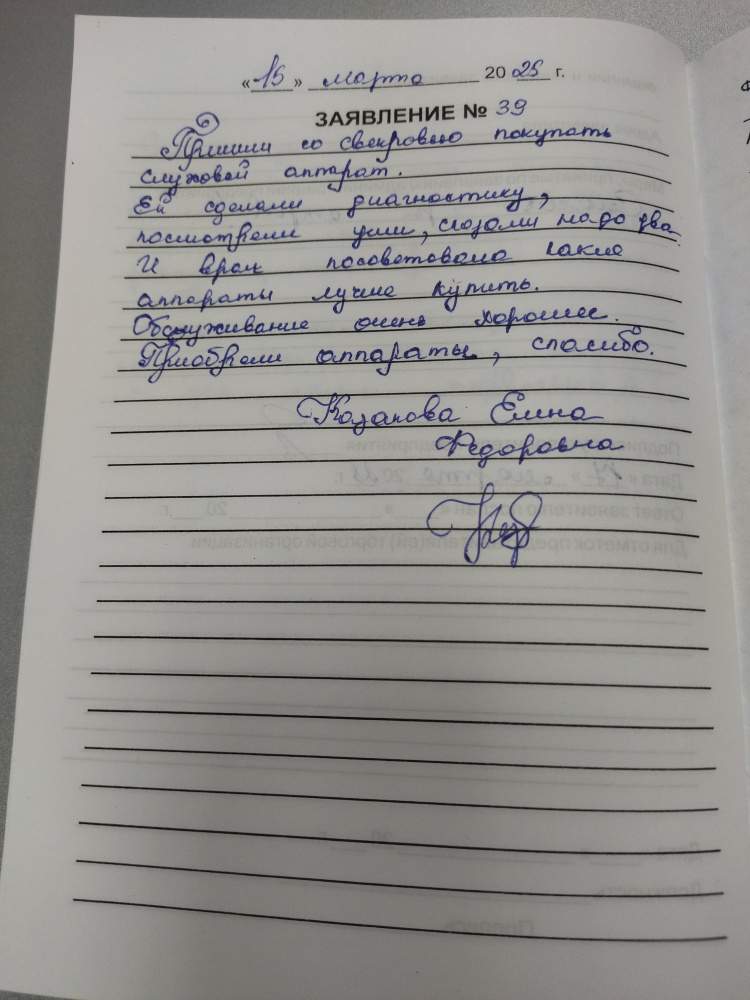 «15» марта 2025 г.
ЗАЯВЛЕНИЕ № 39
Пришли со свекровью покупать
слуховой аппарат.
Ей сделали диагностику,
посмотрели уши, сказали надо два.
И врач посоветовала какие
аппараты лучше купить.
Обслуживание очень хорошее.
Приобрели аппараты, спасибо.
Казакова Елена
Федоровна